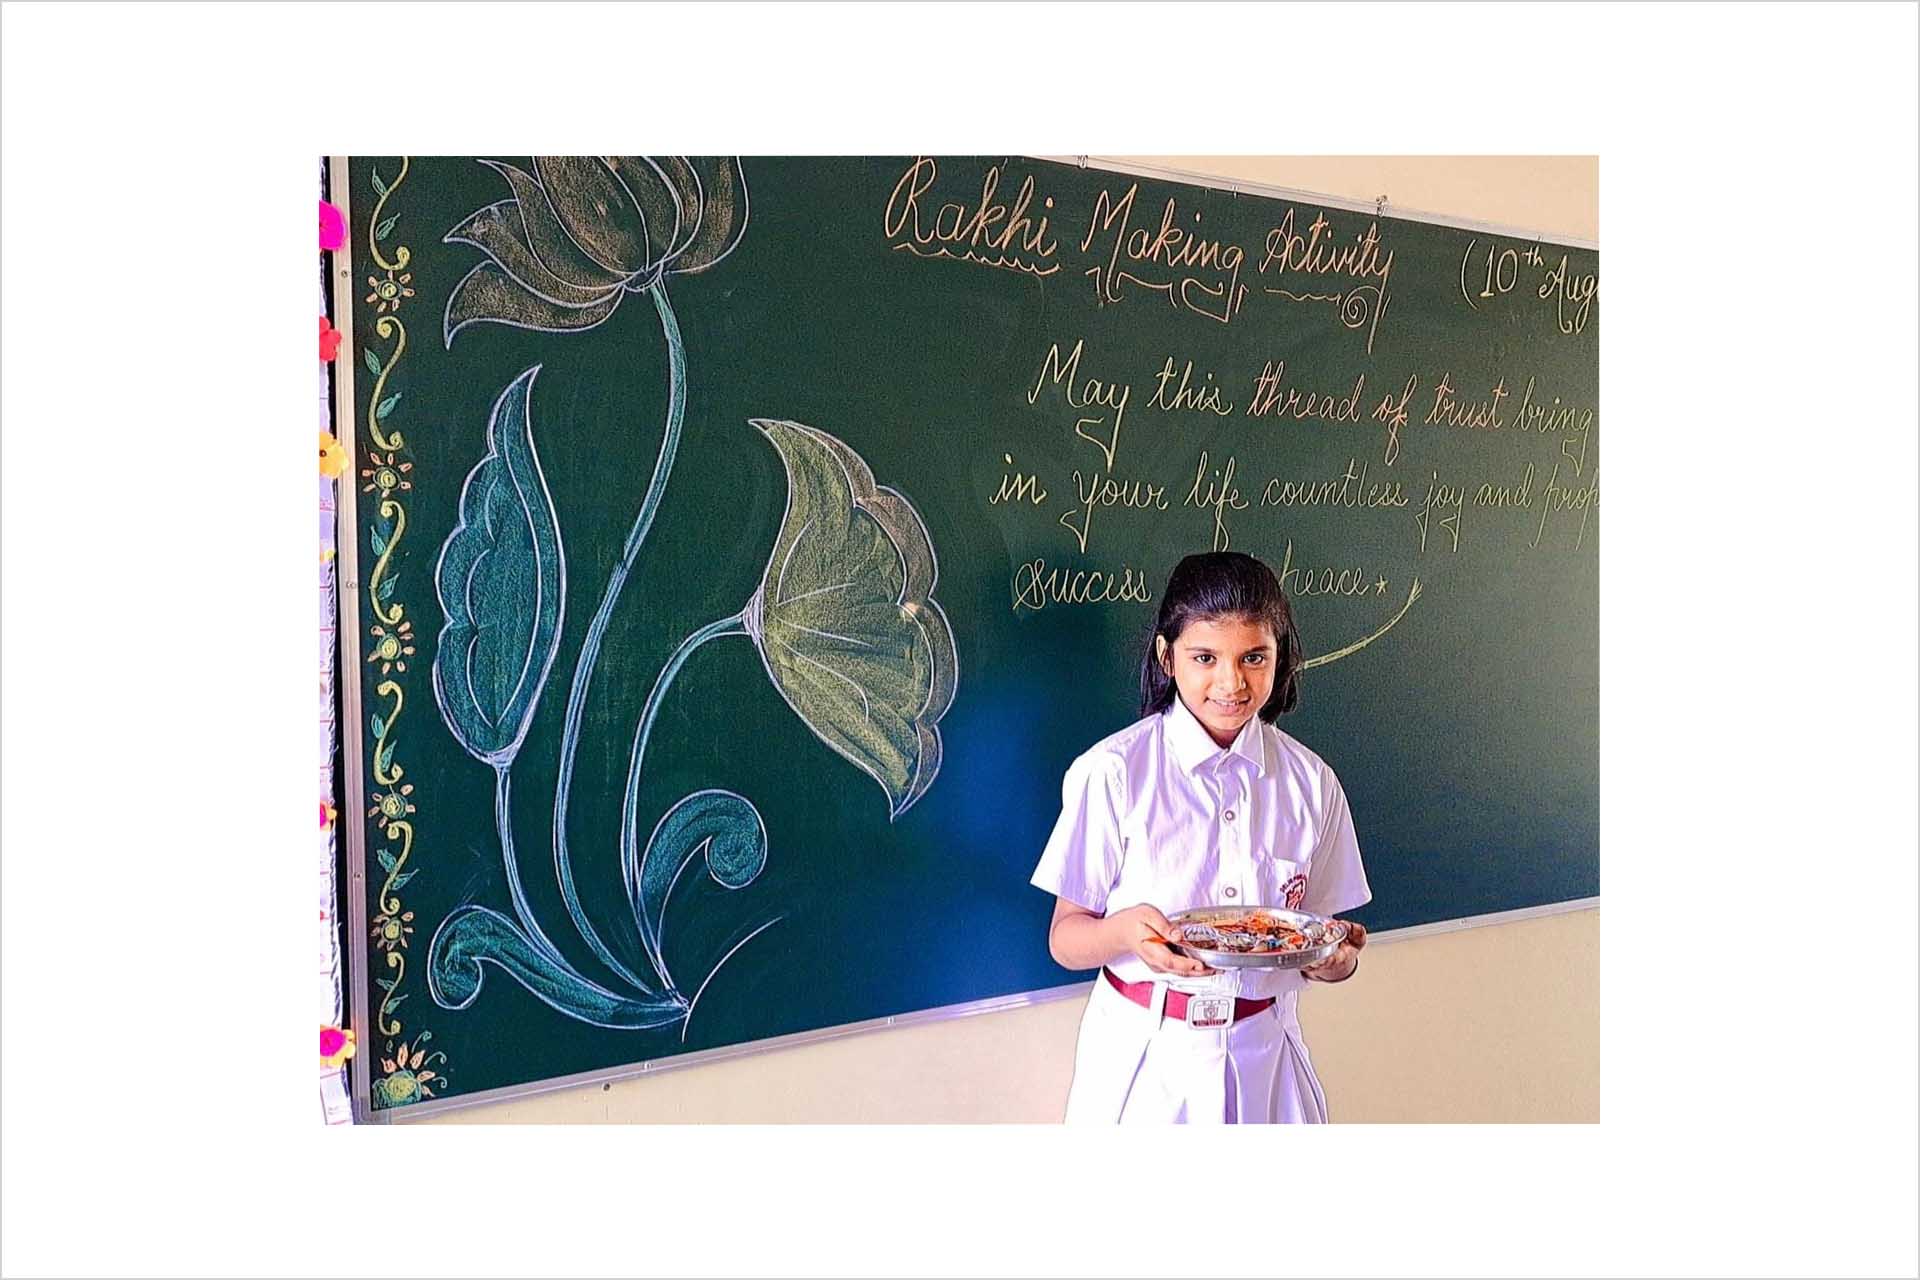 Rakhi Making Activity (10th Aug
May this thread of trust bring
in your life countless joy and prop
success peace